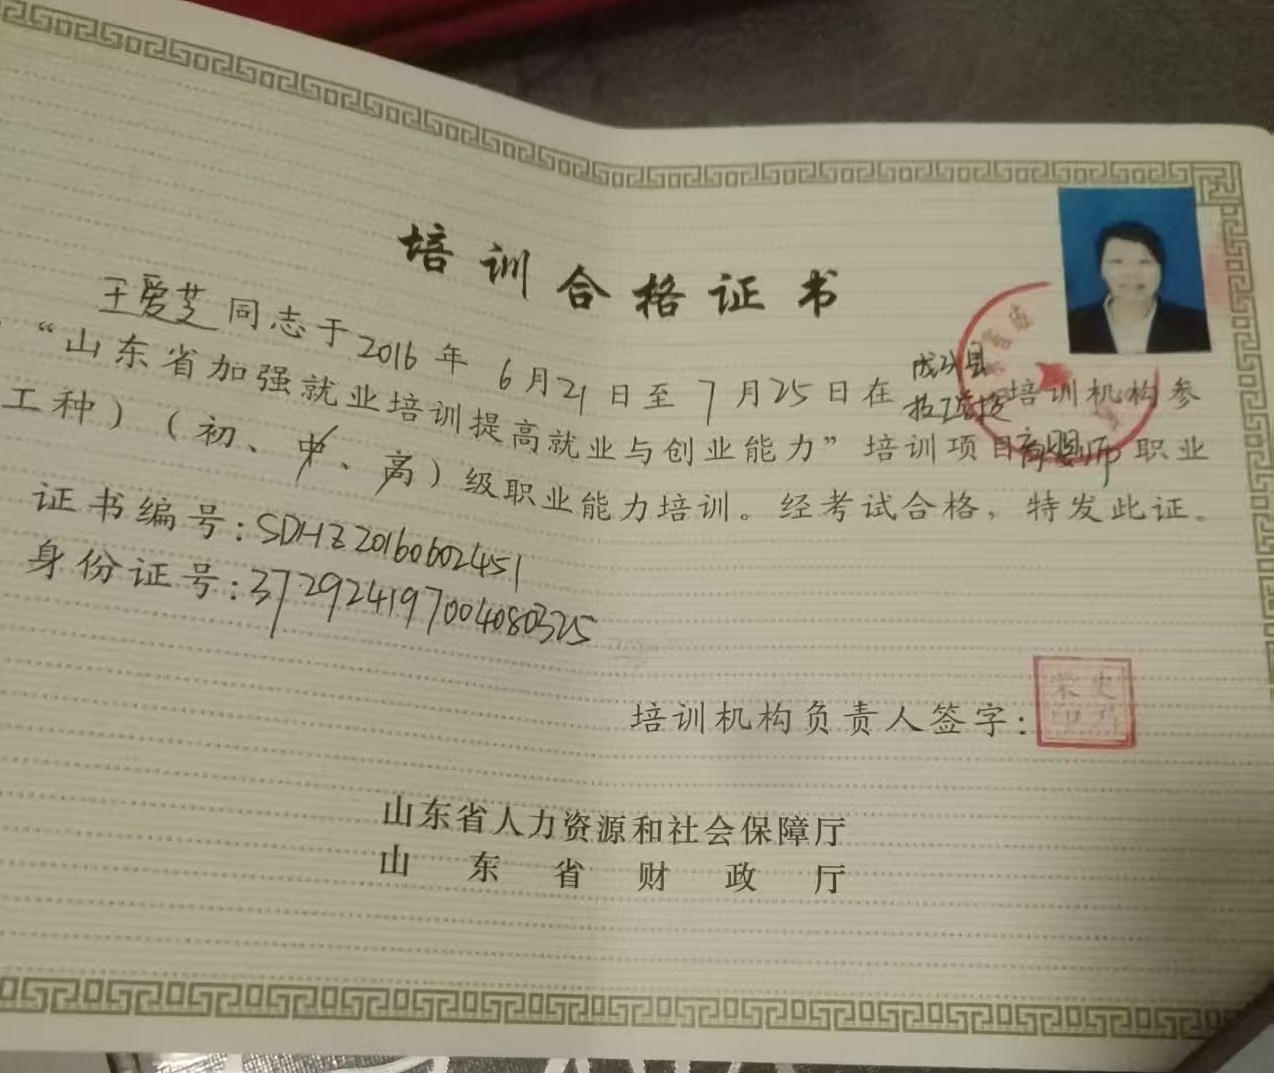 培训合格证书
王爱芝同志于2016年6月21日至7月25日在成武县技工学校培训机构参
“山东省加强就业培训提高就业与创业能力”培训项目育婴师职业
工种）（初、中、高）级职业能力培训。经考试合格，特发此证。
证书编号：SDHZ20160602451
身份证号：372924197004080325
培训机构负责人签字：
山东省人力资源和社会保障厅
山东省财政厅